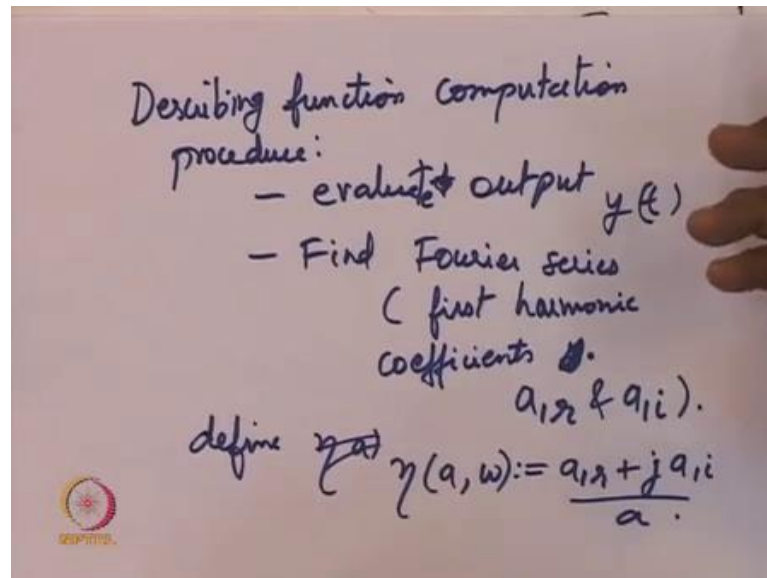 Describing function computation
procedure:
- evaluate output y(t)
- Find Fourier series
( first harmonic
coefficients
a₁r & a₁i ).
define η(a, ω) := a₁r + j a₁i
a .
NPTEL